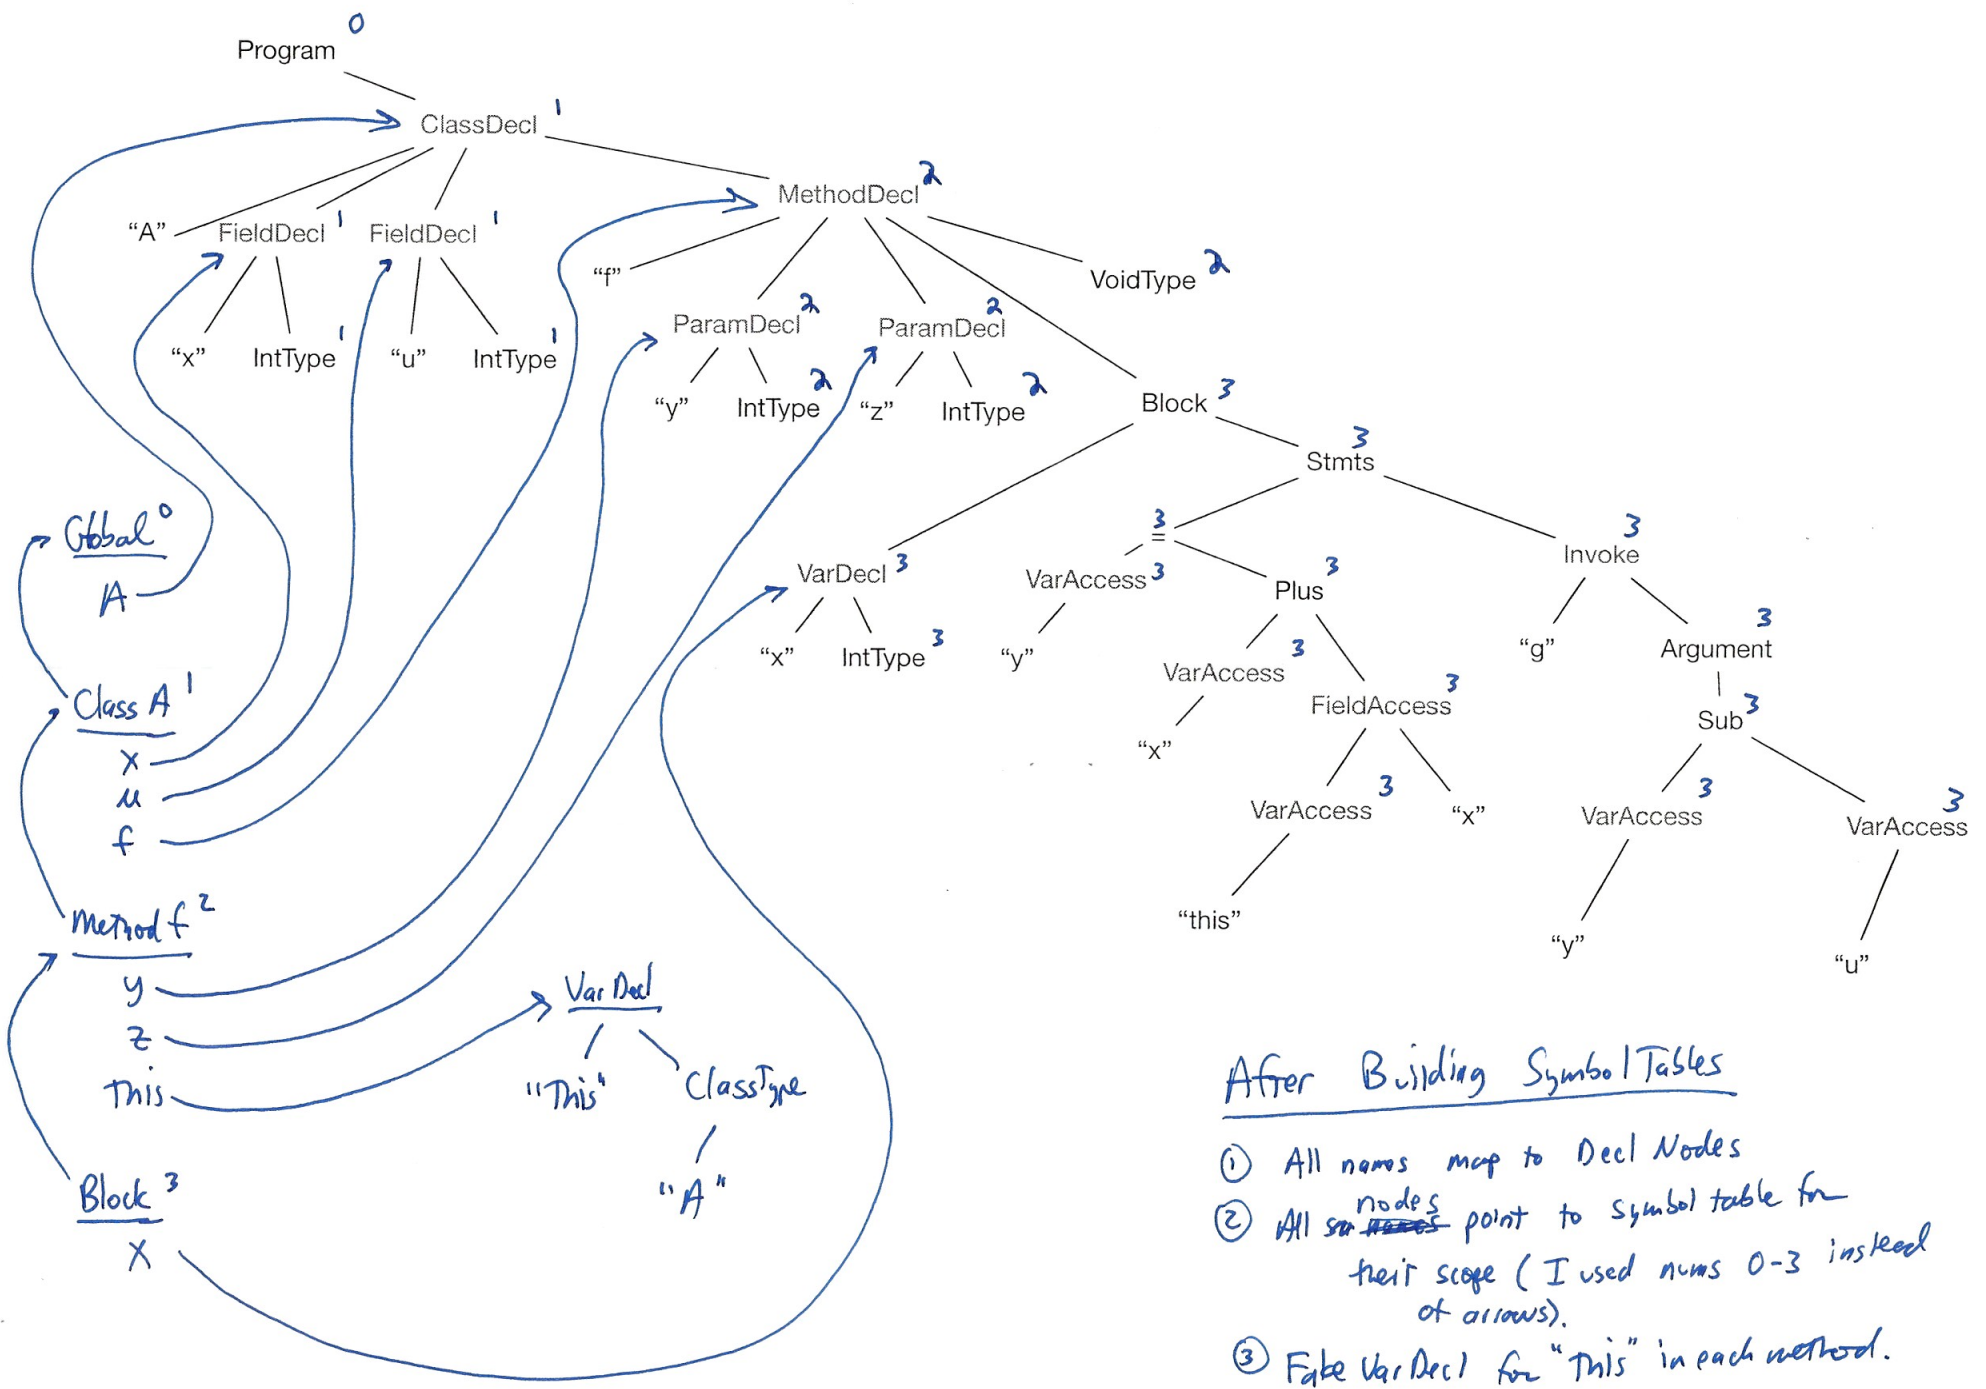 Program 0
ClassDecl 1
MethodDecl 2
“A” FieldDecl 1 FieldDecl 1
“f” VoidType 2
“x” IntType 1 “u” IntType 1
ParamDecl 2 ParamDecl 2
“y” IntType 2 “z” IntType 2
Block 3
Stmts 3
= 3
Invoke 3
VarDecl 3 VarAccess 3 Plus 3
“x” IntType 3 “y”
VarAccess 3 “g” Argument 3
FieldAccess 3 Sub 3
“x”
VarAccess 3 “x” VarAccess 3 VarAccess 3
“this” “y” “u”
Global 0
A
Class A 1
x
u
f
Method f 2
y
z
This
VarDecl
"This" ClassType
"A"
Block 3
X
After Building SymbolTables
① All names map to Decl Nodes
② All nodes point to symbol table for
their scope (I used nums 0-3 instead
of arrows).
③ Fake VarDecl for "This" in each method.